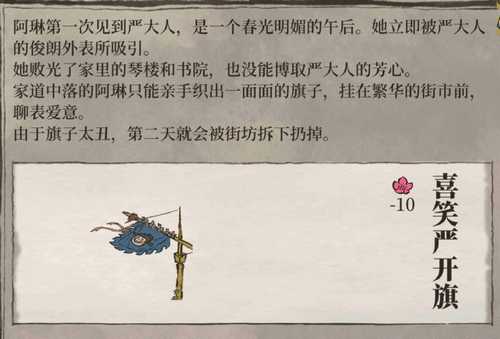 阿琳第一次见到严大人，是一个春光明媚的午后。她立即被严大人
的俊朗外表所吸引。
她败光了家里的琴楼和书院，也没能博取严大人的芳心。
家道中落的阿琳只能亲手织出一面面的旗子，挂在繁华的街市前，
聊表爱意。
由于旗子太丑，第二天就会被街坊拆下扔掉。
-10
喜笑严开旗